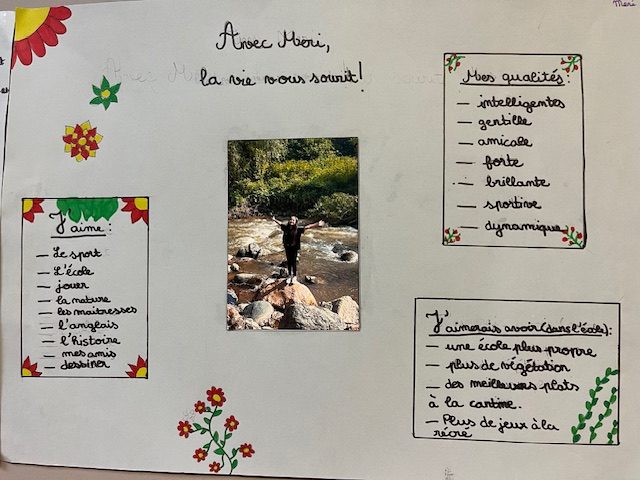 Meri
Avec Meri,
la vie vous sourit!
Mes qualités:
— intelligentes
— gentille
— amicale
— forte
— brillante
— sportive
— dynamique
J'aime:
— Le sport
— L'école
— jouer
— la nature
— les maitresses
— l'anglais
— l'histoire
— mes amis
— dessiner
J'aimerais avoir (dans l'école):
— une école plus propre
— plus de végétation
— des meilleurs plats
à la cantine.
— Plus de jeux à la
récré